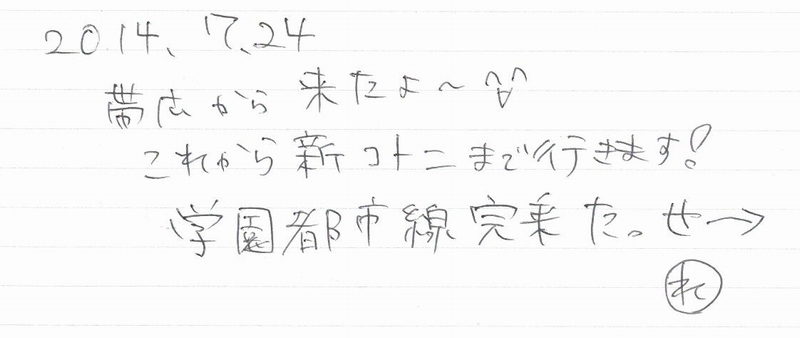 2014、7、24
帯広から来たよ～^▽^
これから新コトニまで行きます!
学園都市線完乗だ。ぜ→
㋹